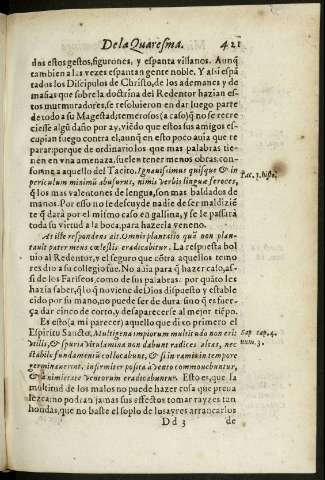 De la Quaresma. 421
dos estos gestos, figurones, y espanta villanos. Aunq̃
tambien a las vezes espantan gente noble. Y assi espã
tados los Discipulos de Christo, de los ademanes y de
masias que sobre la doctrina del Redentor hazian es-
tos murmuradores, se resoluieron en dar luego parte
de todo a su Magestad, temerosos (a caso) q̃ no se recre
ciesse algũ daño por ay, viẽdo que estos sus amigos es-
cupian fuego contra el, aunq̃ en esto poco auia que re
parar: porque de ordinario los que mas palabras tie-
nen en vna amenaza, suelen tener menos obras, con-
forme a aquello del Tacito. Ignauissimus quisque & in
periculum minimũ abusurus, nimis verbis linguæ feroces,
q̃ los mas valentones de lengua, son mas baldados de
manos. Por esso no se descuyde nadie de ser maldiziẽ
te q̃ dará por el mismo caso en gallina, y se le passará
toda su virtud a la boca, para hazerla veneno.
Tac. 3. hist.
At iste respondens ait. Omnis plantatio quã non plan-
tauit pater meus cœlestis eradicabitur. La respuesta bol
uio al Redentor, y el seguro que cõtra aquellos temo
res dio a su colegio fue. No auia para q̃ hazer caso, as-
si de los Fariseos, como de sus palabras: por quãto les
hazia saber, q̃ lo q̃ no viene de Dios dispuesto y estable
cido por su mano, no puede ser de dura sino q̃ es fuer-
ça dar cinco de corto, y desaparecerse al mejor tiẽpo.
Es esto (a mi parecer) aquello que dixo primero el
Espiritu Sancto, Multigena impiorum multitudo non eris
vtilis, & spuria vitulamina non dabunt radices altas, nec
stabile fundamentũ collocabunt, & si in ramis in tempore
germinauerint, infirmiter posita à vento commouebuntur,
& à nimietate ventorum eradicabuntur. Esto es, que la
multitud de los malos no puede hazer cosa que preua
lezca: no podran jamas sus effectos tomar rayzes tan
hondas, que no baste el soplo de los ayres arrancarlos
Sap. cap. 4.
num. 3.
Dd 3 de